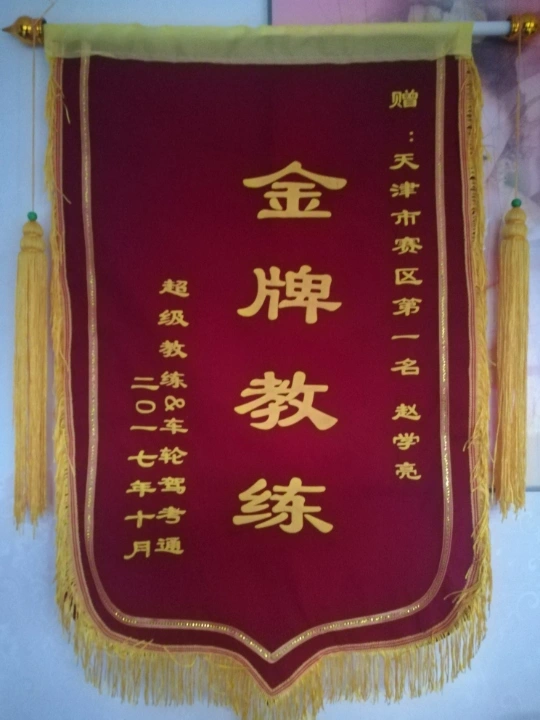 赠：天津市赛区第一名 赵学亮
金牌教练
超级教练&车轮驾考通
二〇一七年十月